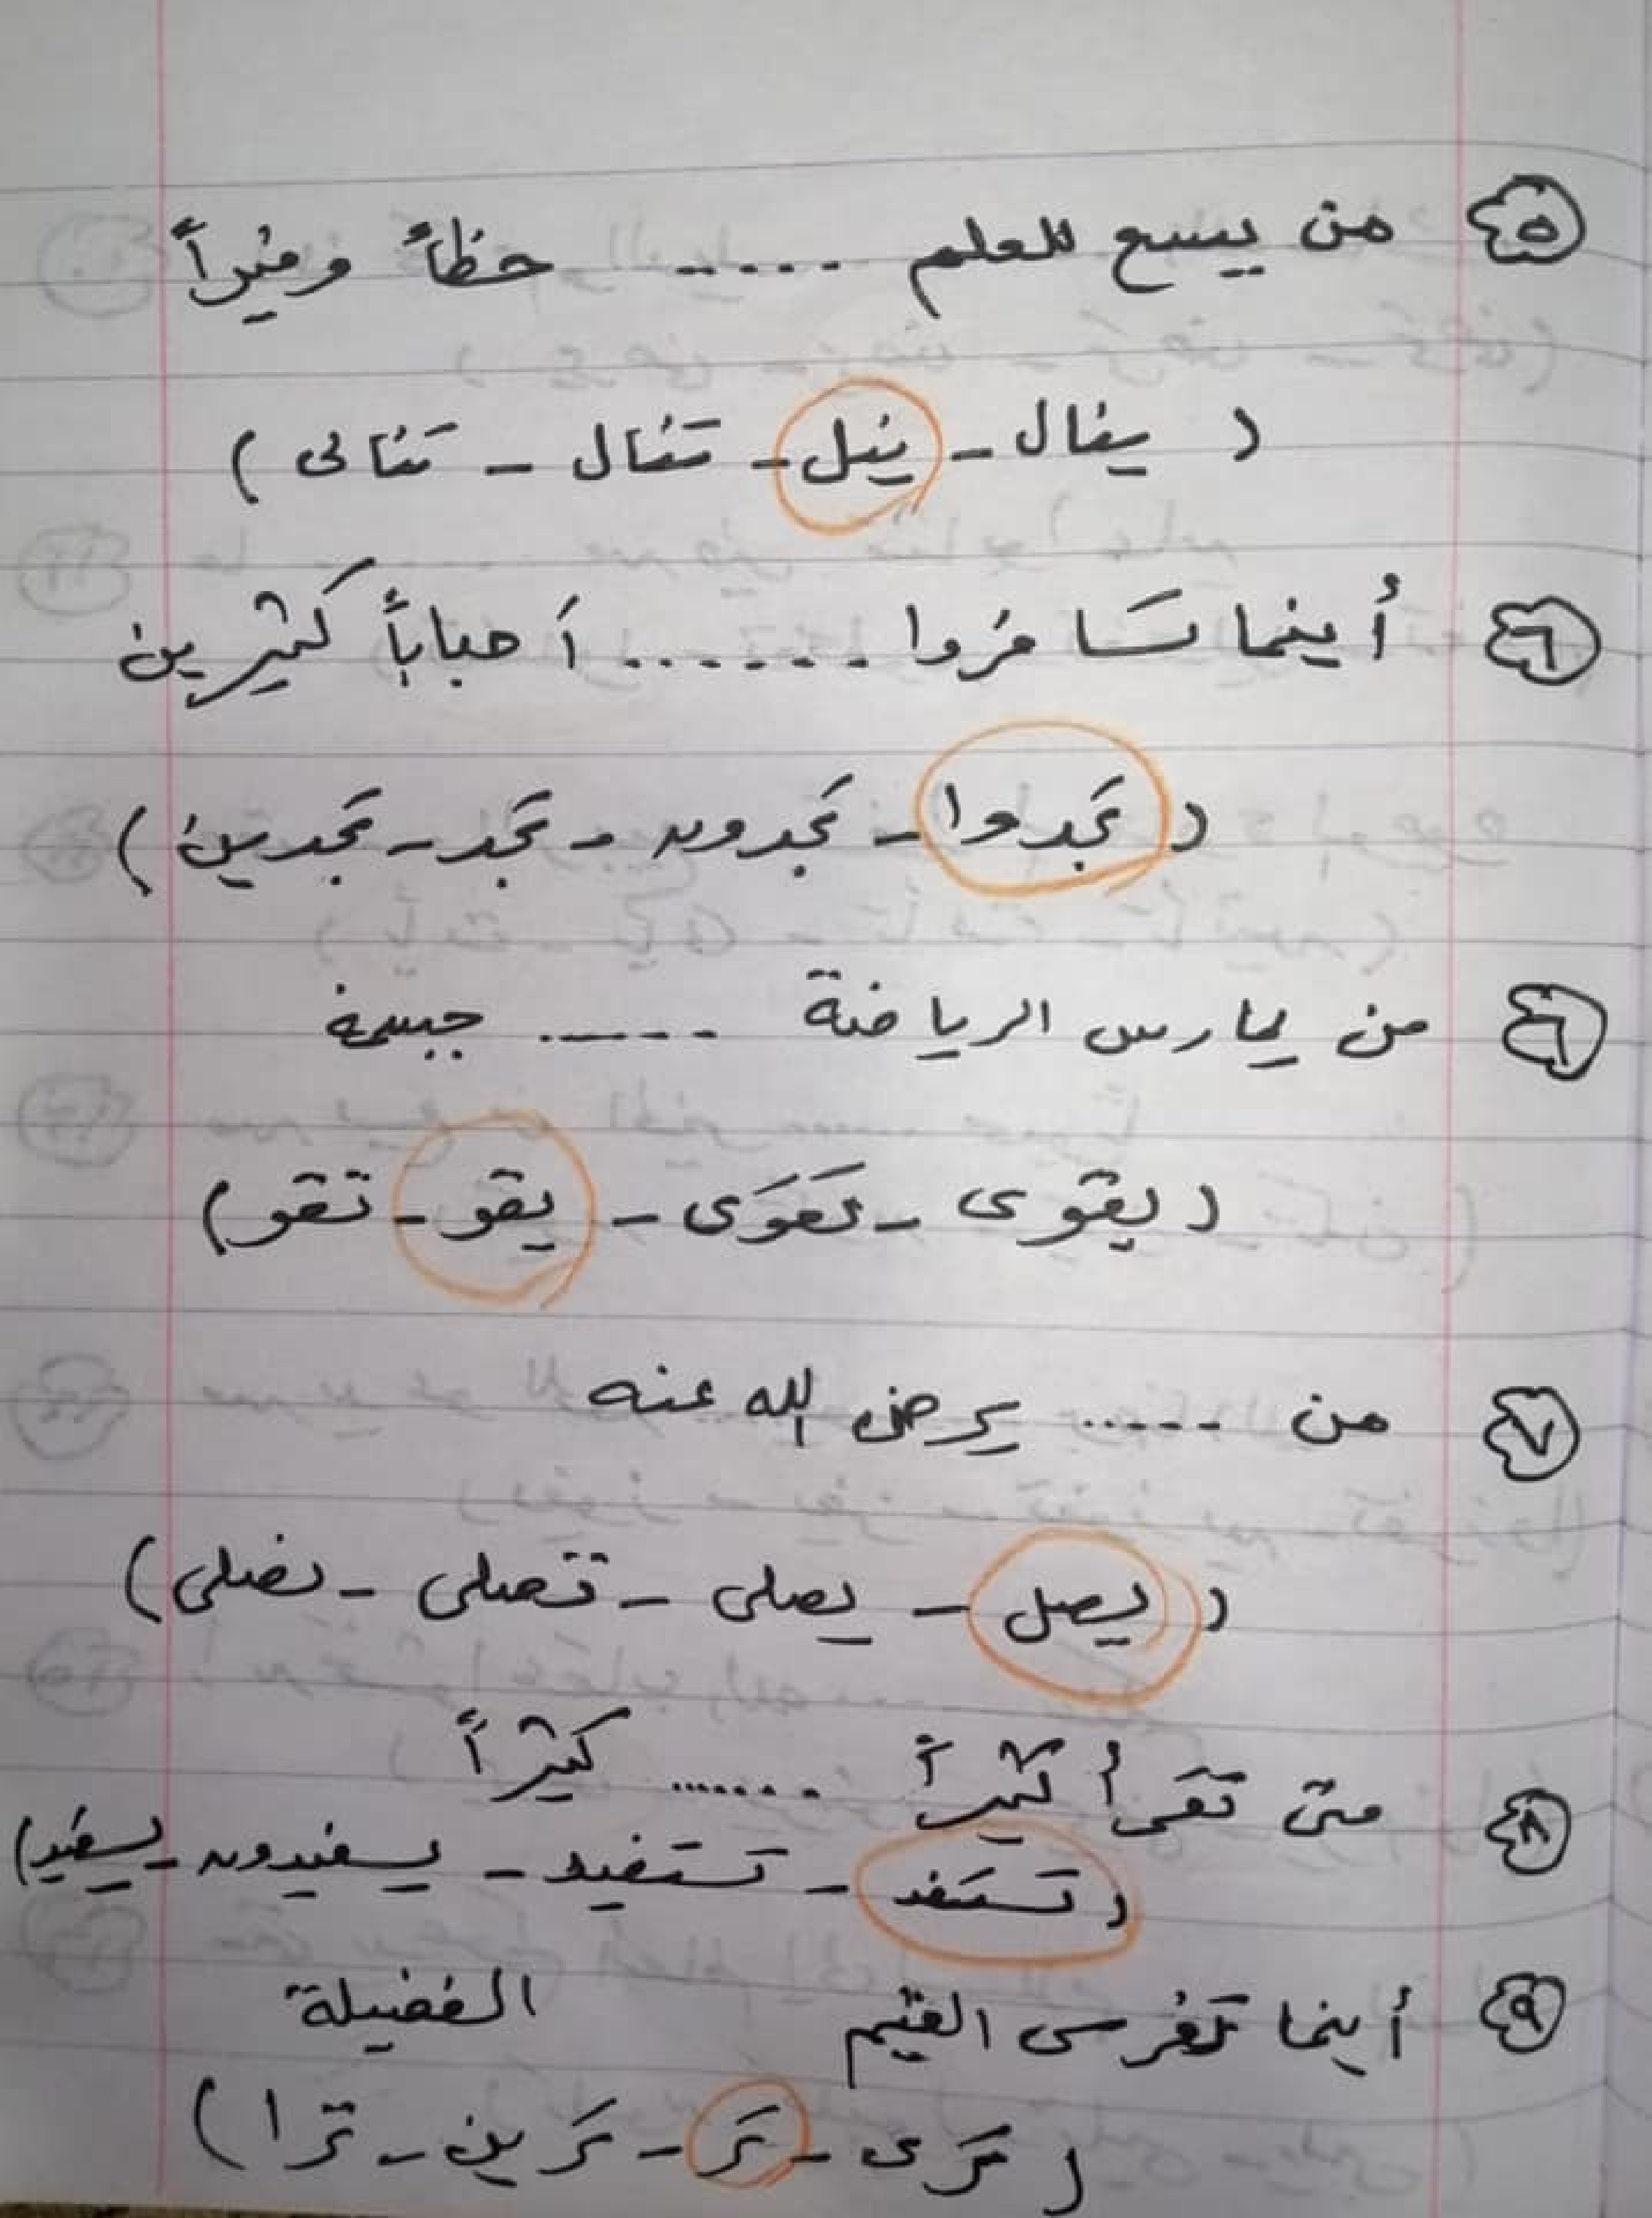 ٥ من يسع للعلم ..... حظاً وفيراً
( ينال - ينل - تنال - تنالى )
٦ أينما تسافروا ...... أحباباً كثيرين
( تجدوا - تجدون - تجد - تجدين )
٦ من يمارس الرياضة ...... جسمه
( يقوى - تقوى - يقو - تقو )
٧ من ..... يرضى الله عنه
( يصل - يصلى - تصلى - نصلى )
٨ متى تقرأ كثيراً ...... كثيراً
( تستفد - تستفيد - يستفيدون - يستفيد )
٩ أينما تغرس القيم الفضيلة
( ترى - تر - ترين - ترا )